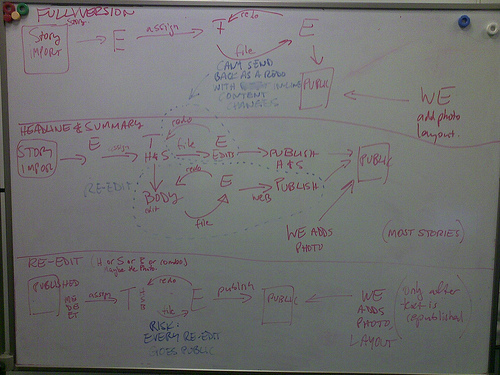 FULL VERSION
Story
IMPORT
E
assign
T
redo
file
E
PUBLIC
CAN'T SEND
BACK AS A REDO
WITH
CONTENT
CHANGES
WE
add photo
layout.
HEADLINE & SUMMARY
STORY
IMPORT
E
assign
T
H&S
redo
file
E
EDITS
PUBLISH
H & S
PUBLIC
RE-EDIT
BODY
edit
redo
file
E
WEB
PUBLISH
WE ADDS
PHOTO
(MOST STORIES)
RE-EDIT (H or S or B or combo)
Maybe the Photo
PUBLISHED
assign
T
H
S
B
redo
file
E
publish
PUBLIC
WE
ADDS
PHOTO,
LAYOUT
(only after
text is
republished)
RISK:
EVERY RE-EDIT
GOES PUBLIC